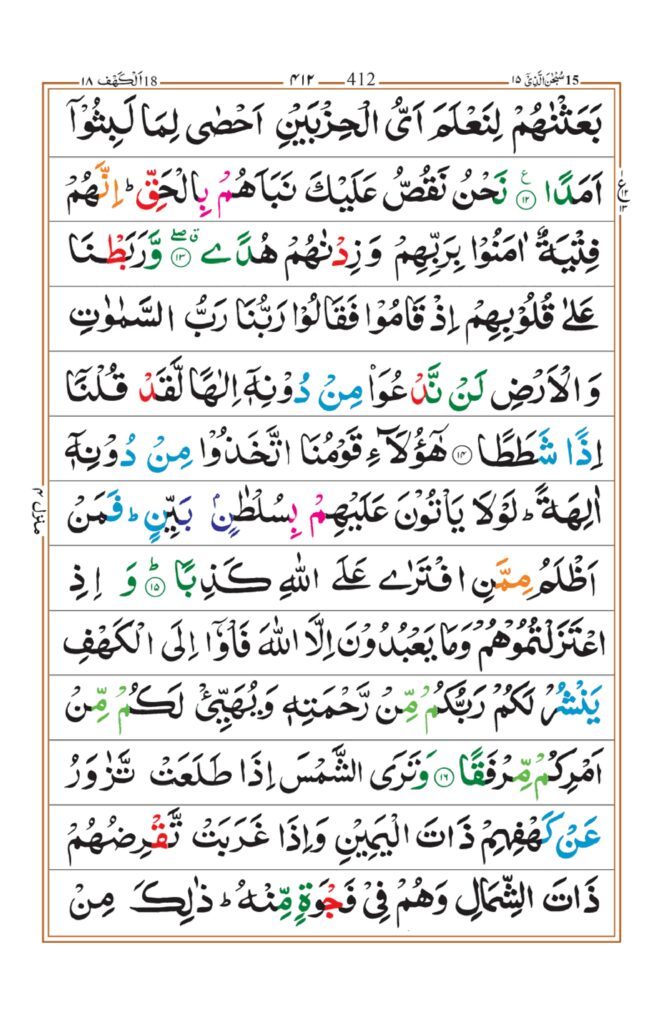 15 سُبْحٰنَ الَّذِیْۤ ۱۵ — 412 — ۴۱۲ — 18 اَلْکَہْف ۱۸
بَعَثْنٰهُمْ لِنَعْلَمَ اَیُّ الْحِزْبَیْنِ اَحْصٰی لِمَا لَبِثُوْۤا
اَمَدًا ۱۲ ع نَحْنُ نَقُصُّ عَلَیْكَ نَبَاَهُمْ بِالْحَقِّ ؕ اِنَّهُمْ
فِتْیَةٌ اٰمَنُوْا بِرَبِّهِمْ وَ زِدْنٰهُمْ هُدًی ۱۳ ق صلے وَّ رَبَطْنَا
عَلٰی قُلُوْبِهِمْ اِذْ قَامُوْا فَقَالُوْا رَبُّنَا رَبُّ السَّمٰوٰتِ
وَ الْاَرْضِ لَنْ نَّدْعُوَا۠ مِنْ دُوْنِهٖۤ اِلٰهًا لَّقَدْ قُلْنَاۤ
اِذًا شَطَطًا ۱۴ هٰۤؤُلَآءِ قَوْمُنَا اتَّخَذُوْا مِنْ دُوْنِهٖۤ
اٰلِهَةً ؕ لَوْلَا یَاْتُوْنَ عَلَیْهِمْ بِسُلْطٰنٍۭ بَیِّنٍ ؕ فَمَنْ
اَظْلَمُ مِمَّنِ افْتَرٰی عَلَی اللّٰهِ كَذِبًا ۱۵ؕ وَ اِذِ
اعْتَزَلْتُمُوْهُمْ وَمَا یَعْبُدُوْنَ اِلَّا اللّٰهَ فَاْوٗۤا اِلَی الْكَهْفِ
یَنْشُرْ لَكُمْ رَبُّكُمْ مِّنْ رَّحْمَتِهٖ وَیُهَیِّئْ لَكُمْ مِّنْ
اَمْرِكُمْ مِّرْفَقًا ۱۶ وَتَرَی الشَّمْسَ اِذَا طَلَعَتْ تَّزٰوَرُ
عَنْ كَهْفِهِمْ ذَاتَ الْیَمِیْنِ وَاِذَا غَرَبَتْ تَّقْرِضُهُمْ
ذَاتَ الشِّمَالِ وَهُمْ فِیْ فَجْوَةٍ مِّنْهُ ؕ ذٰلِكَ مِنْ
منزل ۴